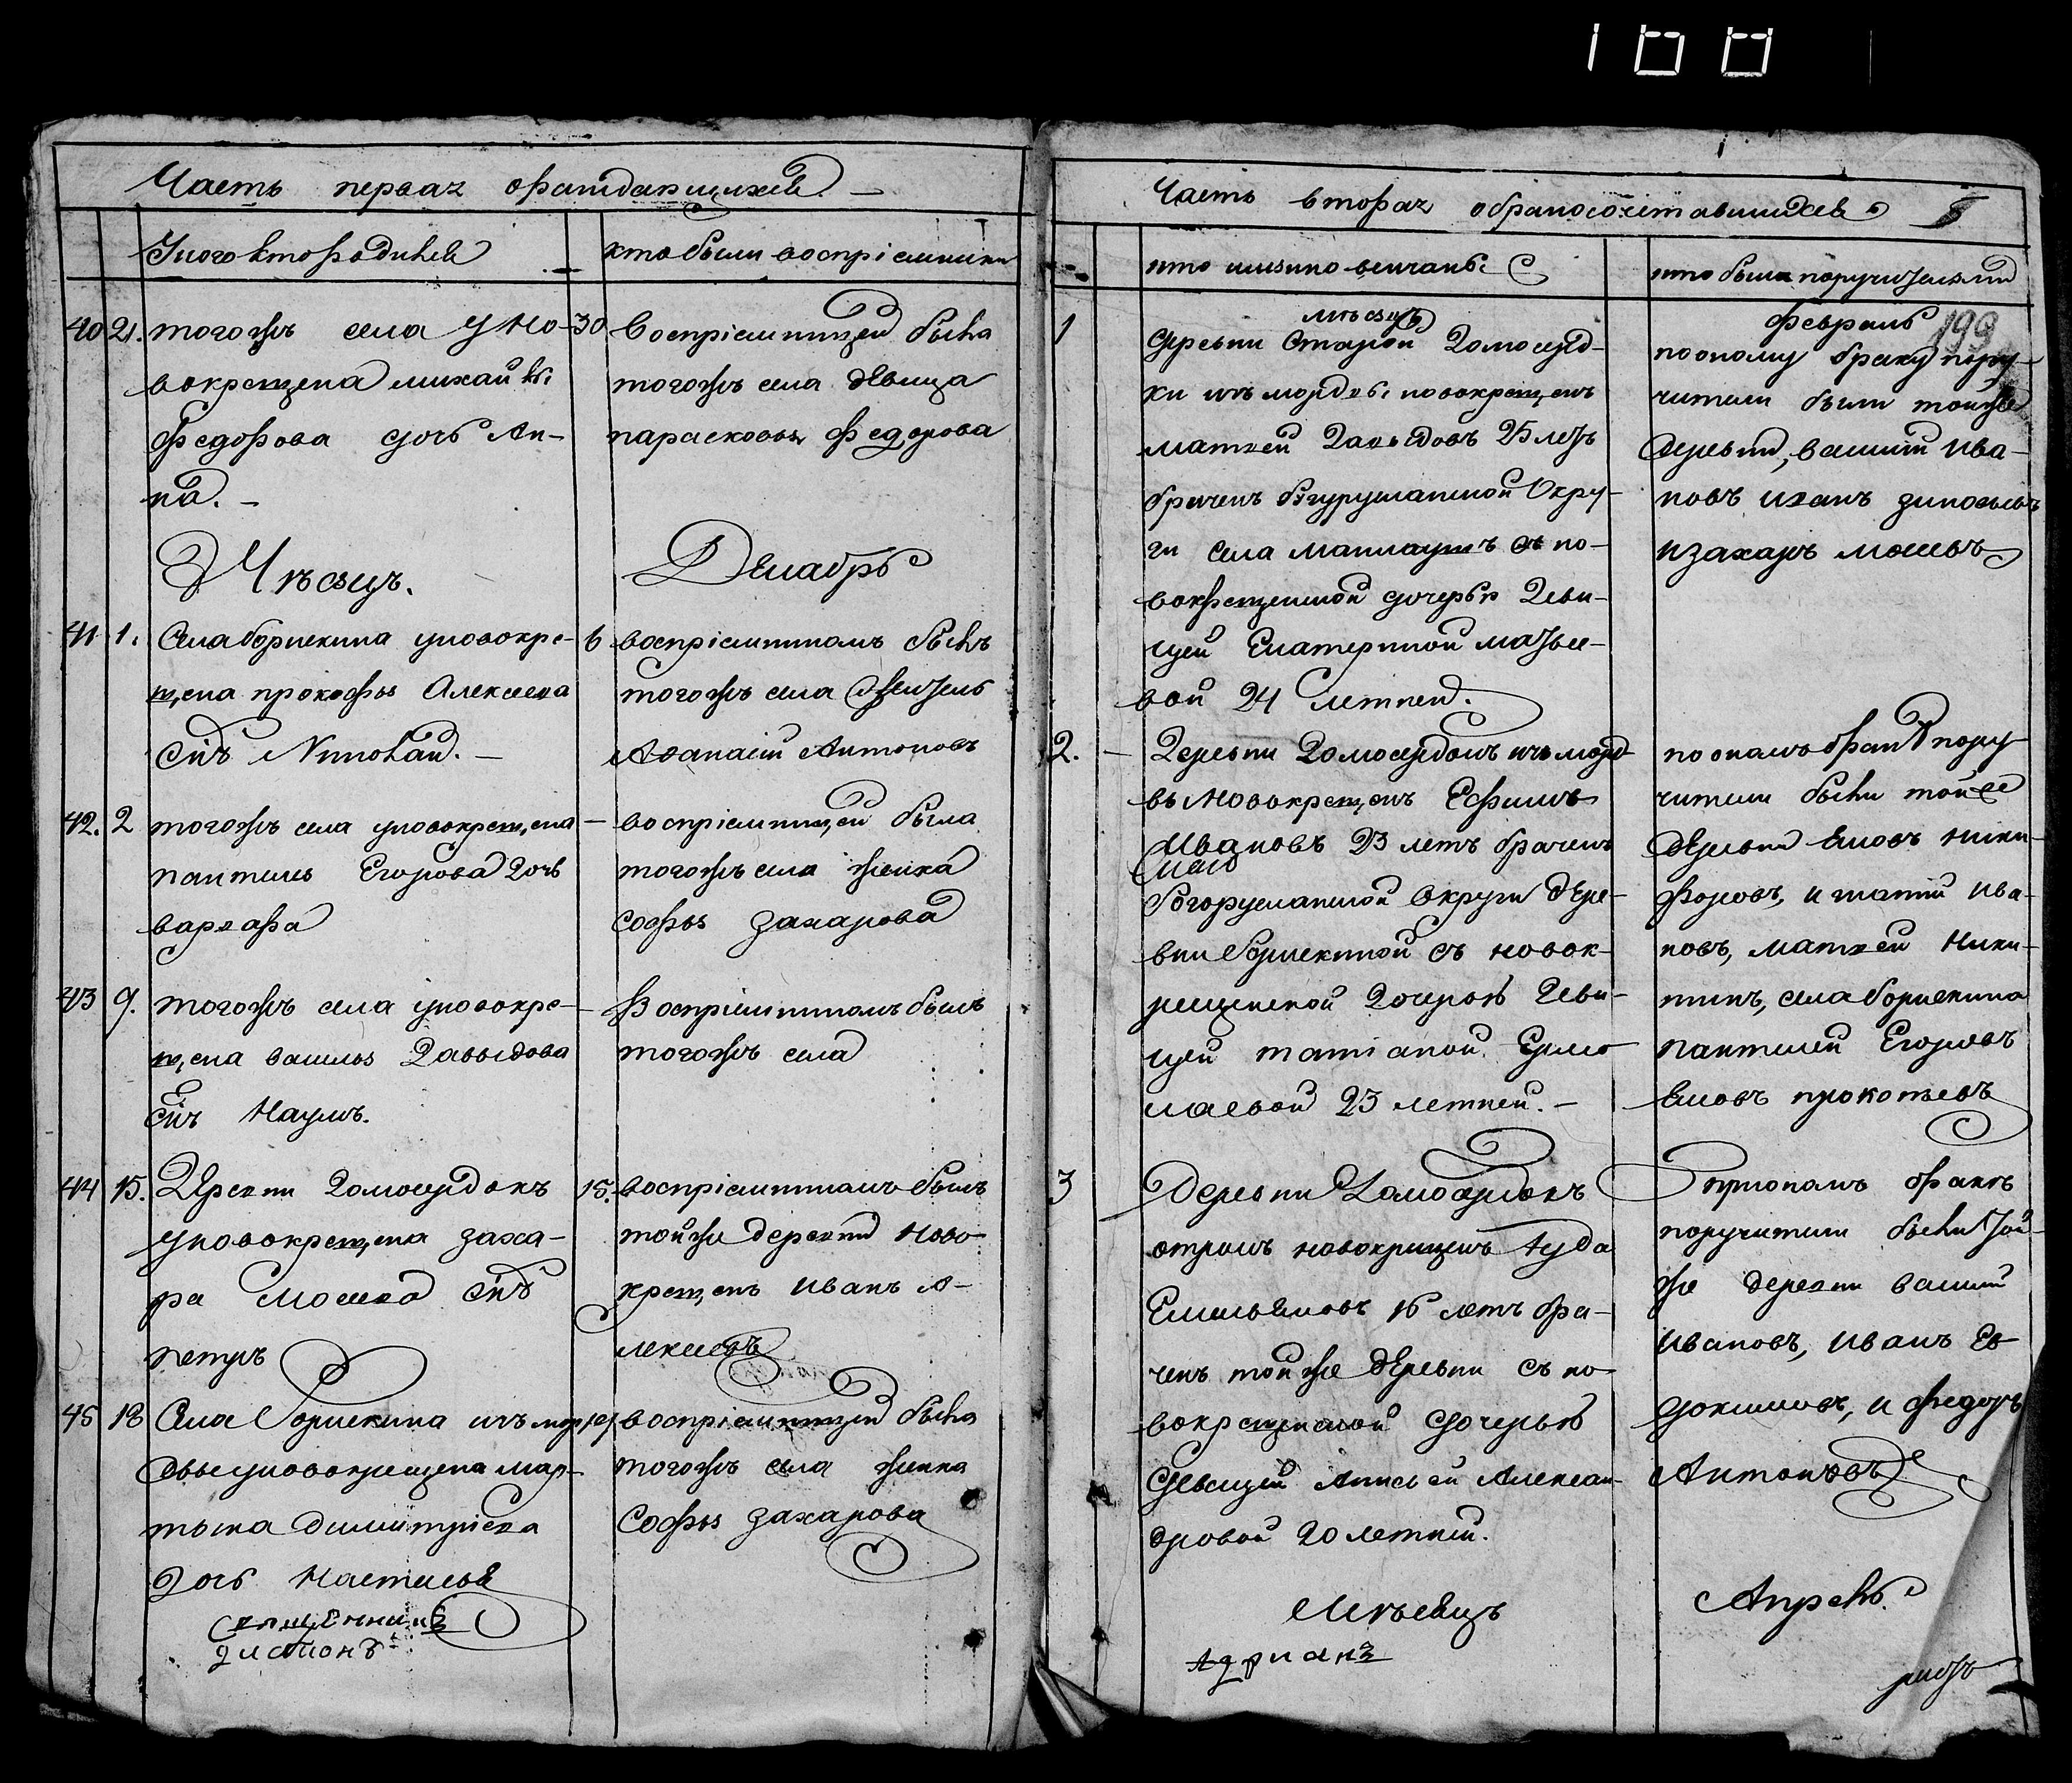 100
Часть первая ораждающихся
У кого кто родился
кто были воспріемники
40 21. тогожъ села у но-
вокрещена михайлы
Федорова дочь Ан-
на.
30 Воспріемницей была
тогожъ села дѣвица
парасковья федорова
Мѣсяцъ.
Декабрь
41 1. Села борискина уновокре-
щена прокофья Алексеева
сн҃ъ Николай.
6 воспріемникомъ былъ
тогожъ села
Афанасій Антоновъ
42. 2 тогожъ села уновокрещена
пантелея Егорова дочь
варвара
воспріемницей была
тогожъ села женка
Софья захарова
43 9. тогожъ села уновокре-
щена василья Давыдова
сн҃ъ Наумъ.
Воспріемникомъ былъ
тогожъ села
44 15. Деревни Домосердокъ
уновокрещена заха-
ра Мосеева сн҃ъ
петръ
15. воспріемникомъ былъ
тойже деревни Ново-
крещенъ иванъ А-
лексеевъ
45 18 Села Борискина изъ мор
двы уновокрещена мар-
тына димитріева
дочь Настасья
19 воспріемницей была
тогожъ села женка
Софья захарова
священникъ
Часть вторая обракосочетавшихся
кто имянно венчаны
кто были поручителями
199
мѣсяцъ
февраль
1
деревни Старой Домосерд-
ки изъ мордвы новокрещенъ
матвей Давыдовъ 25 летъ
браченъ бугурусланской Окру-
ги села с но-
вокрещенной дочерью Деви-
цей Екатериной матвее-
вой 24 летней.
по оному браку пору-
чители были тойже
деревни, василий ива-
новъ иванъ зиновьевъ
и захаръ мосевъ
2.
Деревни Домосердокъ изъ морд
вы Новокрещенъ Ефимъ
Ивановъ 23 летъ браченъ
Богорусланской Округи дере-
вни Борискиной съ новок-
рещенской Дочерью Деви-
цей татіаной Ермо
лаевой 23 летней.
по онамъ браке пору
чители были тойже
деревни Яковъ Ники-
форовъ, игнатій ива-
новъ, матвей Ники-
тинъ, села борискина
пантелей Егоровъ
Яковъ прокопьевъ
3
Деревни Домосердокъ
отрокъ новокрещенъ Іуда
Емельяновъ 16 летъ бра-
ченъ той же деревни съ но
вокрещенской дочерью
Девицей Анисьей Алексан-
дровой 20 летней.
приономъ браке
поручители были той-
же деревни василий
ивановъ, иванъ Ев
докимовъ, и федоръ
Антоновъ
Мѣсяцъ
Апрель.
Адрианъ